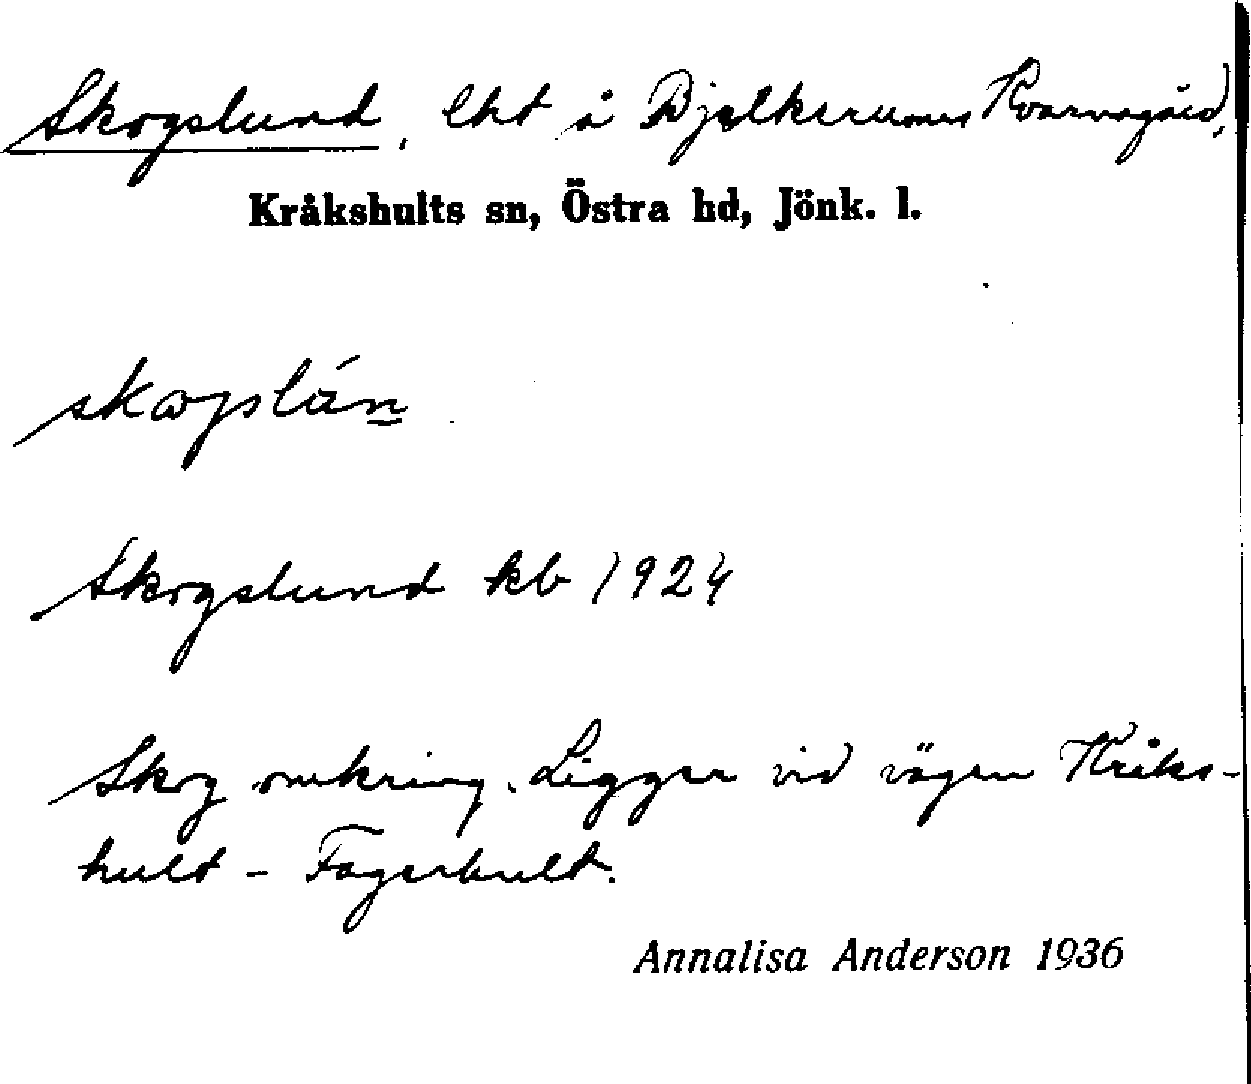 Skogslund, lht å Bjälkerums Kvarnagård,
Kråkshults sn, Östra hd, Jönk. l.
skogslán
Skogslund kb 1924
Skog omkring. Ligger vid vägen Kråks-
hult - Fagerhult.
Annalisa Anderson 1936